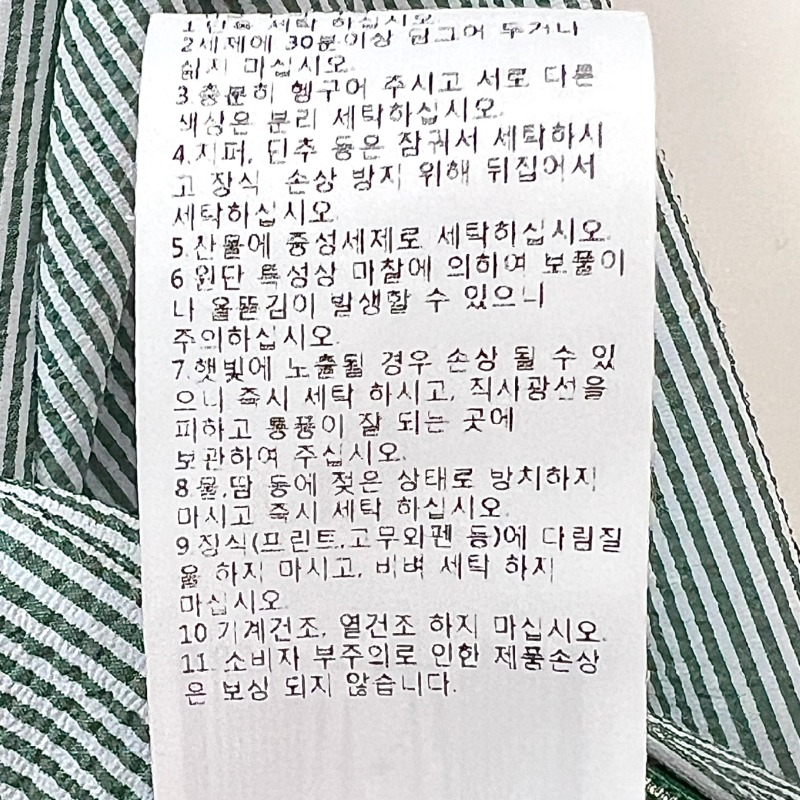 1.단독 세탁 하십시오.
2세제에 30분이상 담그어 두거나
삶지 마십시오.
3.충분히 헹구어 주시고 서로 다른
색상은 분리 세탁하십시오.
4.지퍼, 단추 등은 잠궈서 세탁하시
고 장식 손상 방지 위해 뒤집어서
세탁하십시오.
5.찬물에 중성세제로 세탁하십시오.
6.원단 특성상 마찰에 의하여 보풀이
나 올뜯김이 발생할 수 있으니
주의하십시오.
7.햇빛에 노출될 경우 손상 될 수 있
으니 즉시 세탁 하시고, 직사광선을
피하고 통풍이 잘 되는 곳에
보관하여 주십시오.
8.물,땀 등에 젖은 상태로 방치하지
마시고 즉시 세탁 하십시오.
9.장식(프린트,고무와펜 등)에 다림질
을 하지 마시고, 비벼 세탁 하지
마십시오.
10.기계건조, 열건조 하지 마십시오.
11. 소비자 부주의로 인한 제품손상
은 보상 되지 않습니다.